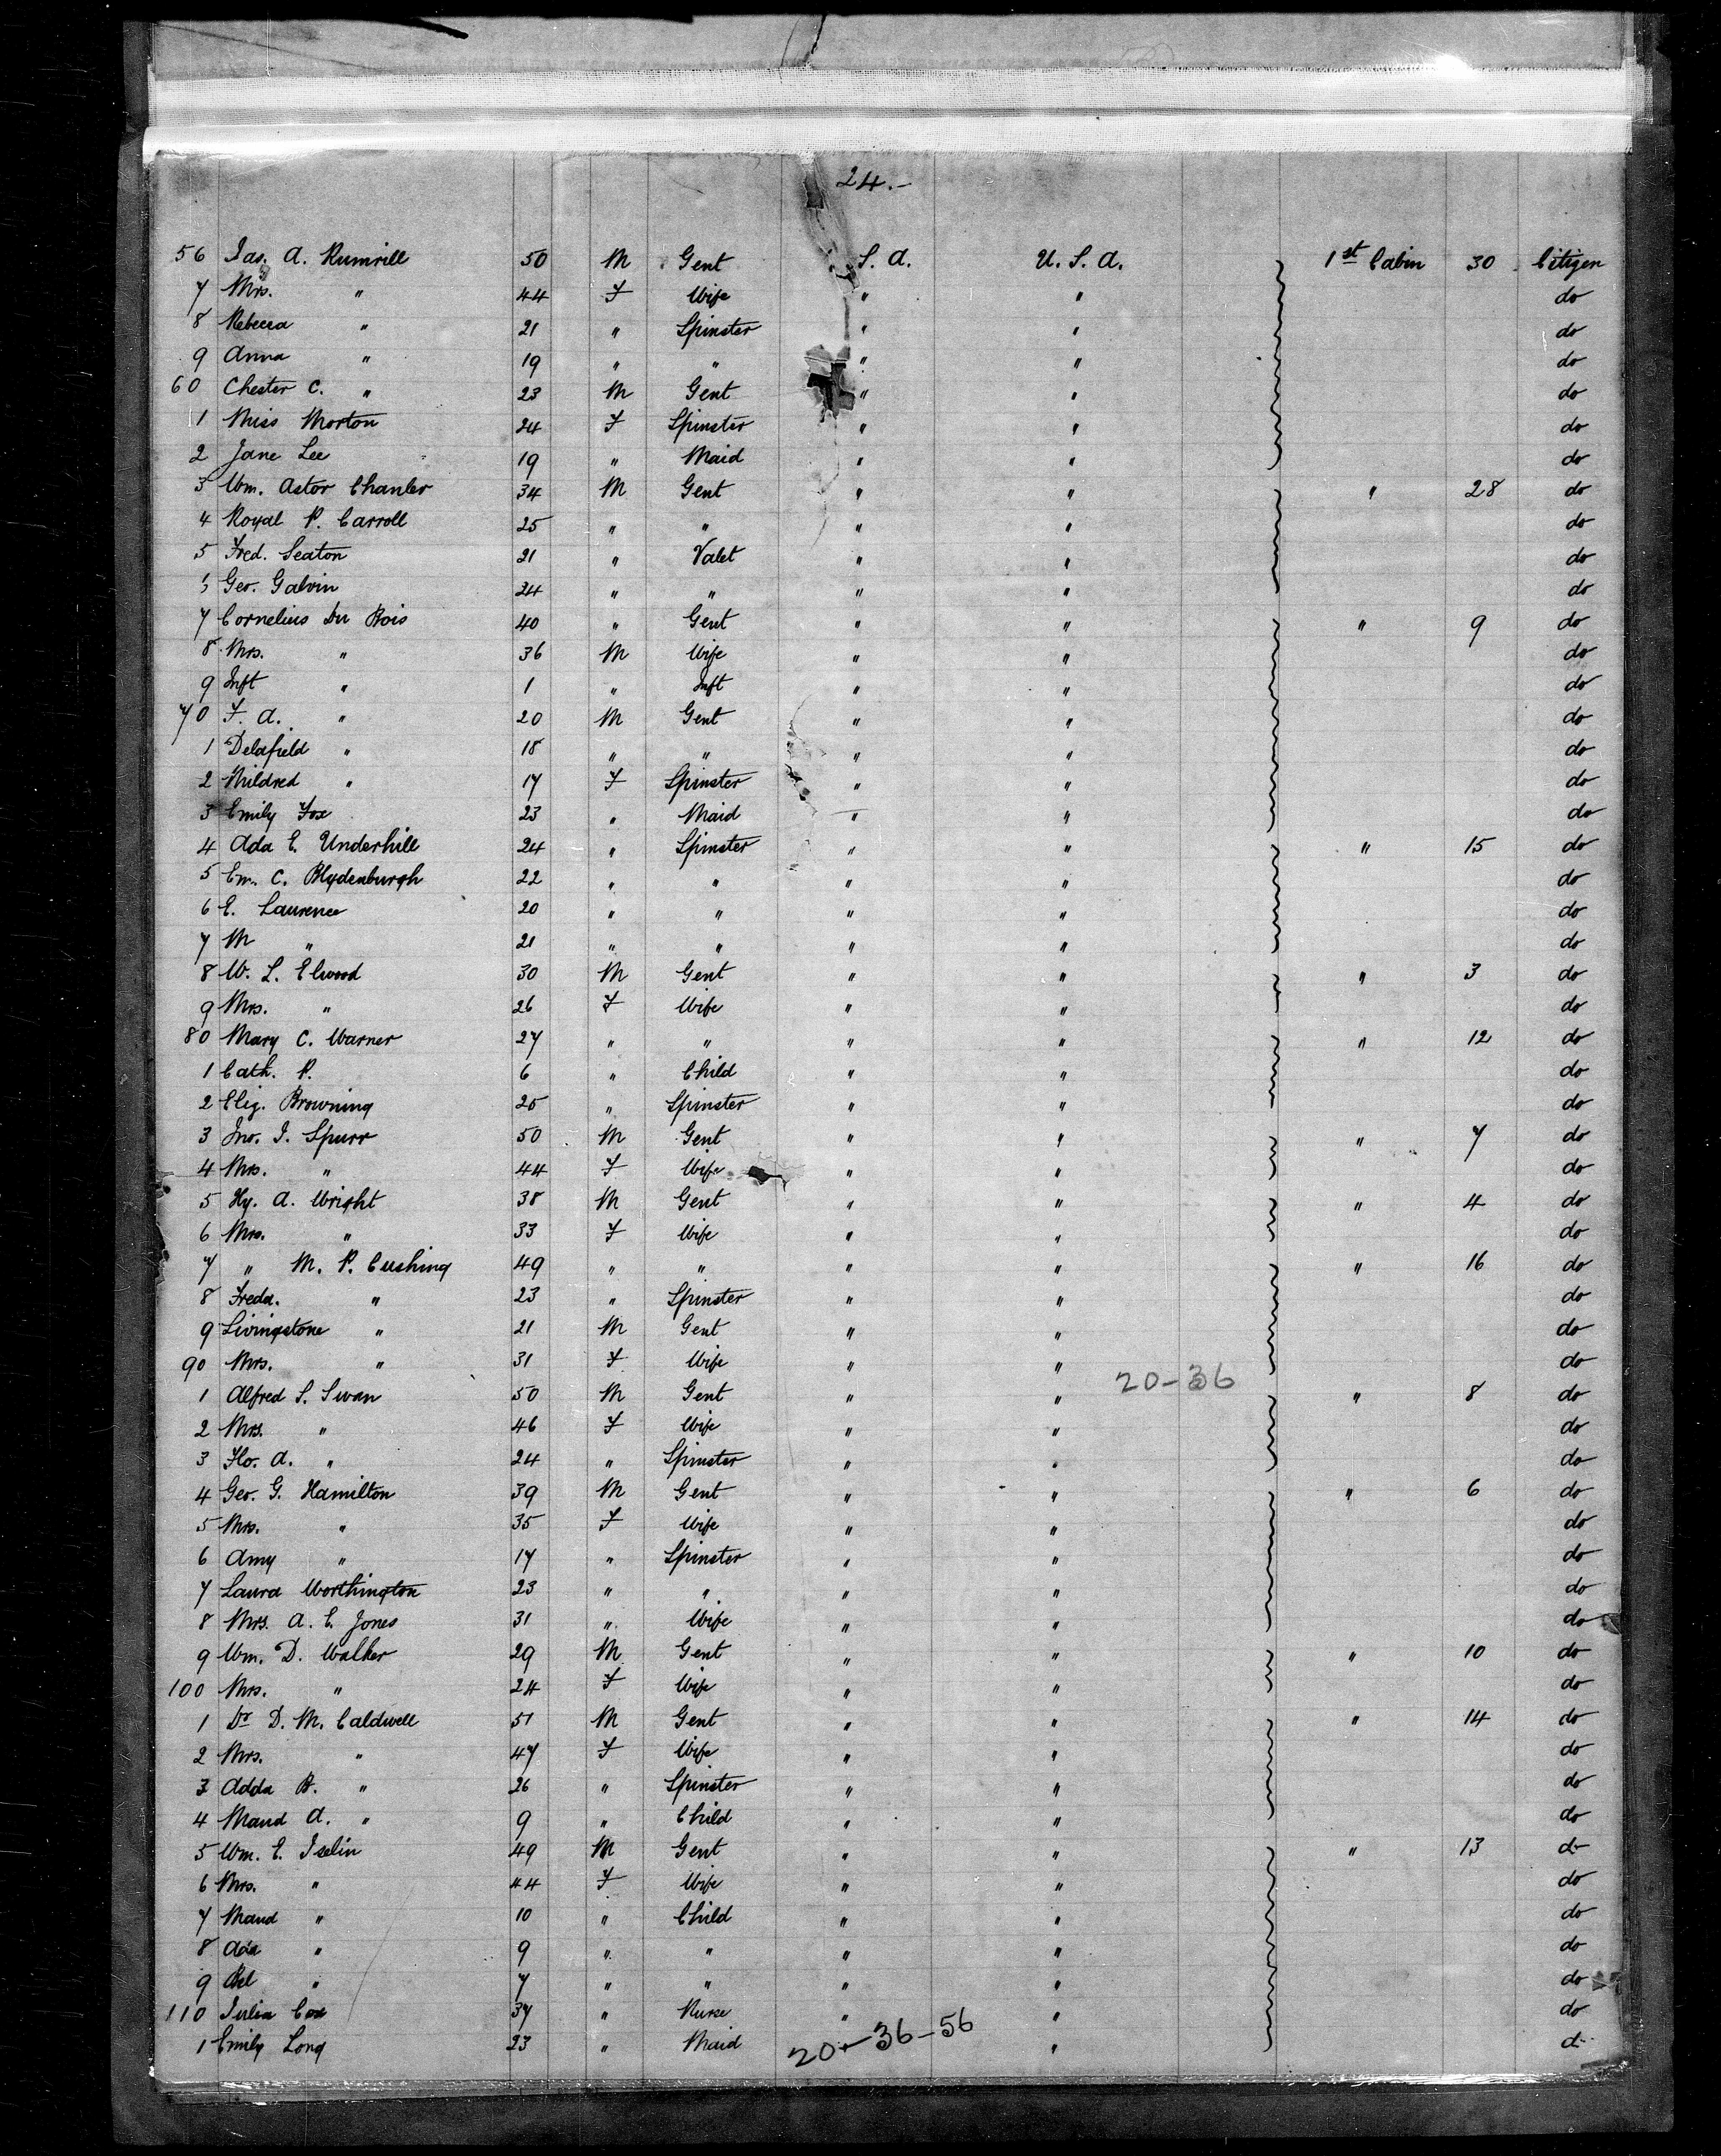 24.-
56 Jas. A. Rumrill 50 M Gent S. A. U. S. A. 1st Cabin 30 Citizen
7 Mrs. " 44 F Wife " " do
8 Rebecca " 21 " Spinster " " do
9 Anna " 19 " " " " do
60 Chester C. " 23 M Gent " " do
1 Miss Morton 24 F Spinster " " do
2 Jane Lee 19 " Maid " " do
3 Wm. Astor Chanler 34 M Gent " " " 28 do
4 Royal P. Carroll 25 " " " " do
5 Fred. Seaton 21 " Valet " " do
Geo. Galvin 24 " " " " do
7 Cornelius Du Bois 40 " Gent " " " 9 do
8 Mrs. " 36 M Wife " " do
9 Inft " 1 " Inft " " do
70 F. A. " 20 M Gent " " do
1 Delafield " 18 " " " " do
2 Mildred " 17 F Spinster " " do
3 Emily Fox 23 " Maid " " do
4 Ada E. Underhill 24 " Spinster " " " 15 do
5 Em. C. Blydenburgh 22 " " " " do
6 E. Laurence 20 " " " " do
7 M " 21 " " " " do
8 W. L. Elwood 30 M Gent " " " 3 do
9 Mrs. " 26 F Wife " " do
80 Mary C. Warner 27 " " " " " 12 do
1 Cath. P. 6 " Child " " do
2 Eliz. Browning 25 " Spinster " " do
3 Jno. I. Spurr 50 M Gent " " " 7 do
4 Mrs. " 44 F Wife " " do
5 Hy. A. Wright 38 M Gent " " " 4 do
6 Mrs. " 33 F Wife " " do
7 " M. P. Cushing 49 " " " " " 16 do
8 Freda. " 23 " Spinster " " do
9 Livingstone " 21 M Gent " " do
90 Mrs. " 31 F Wife " " do
20-36
1 Alfred S. Swan 50 M Gent " " " 8 do
2 Mrs. " 46 F Wife " " do
3 Flo. A. " 24 " Spinster " " do
4 Geo. G. Hamilton 39 M Gent " " " 6 do
5 Mrs. " 35 F Wife " " do
6 Amy " 17 " Spinster " " do
7 Laura Worthington 23 " " " " do
8 Mrs. A. E. Jones 31 " Wife " " do
9 Wm. D. Walker 29 M Gent " " " 10 do
100 Mrs. " 24 F Wife " " do
1 Dr D. M. Caldwell 51 M Gent " " " 14 do
2 Mrs. " 47 F Wife " " do
3 Adda B. " 26 " Spinster " " do
4 Maud A. " 9 " Child " " do
5 Wm. E. Iselin 49 M Gent " " " 13 do
6 Mrs. " 44 F Wife " " do
7 Maud " 10 " Child " " do
8 Ada " 9 " " " " do
9 " 7 " " " " do
110 Julia 37 " Nurse " " do
1 Emily Long 23 " Maid " do
20-36-56